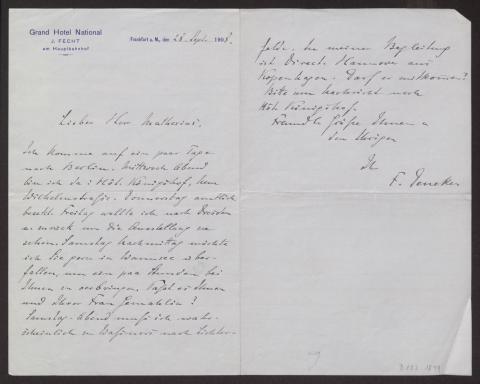 Grand Hotel National
J. FECHT
am Hauptbahnhof
Frankfurt a. M., den 28 Sept. 1908.
Lieber Herr Muthesius.
Ich komme auf ein paar Tage
nach Berlin. Mittwoch Abend
bin ich da: Hôt. Königshof, 
Wilhelmstraße. Donnerstag amtlich
Freitag wollte ich nach Dresden
um die Ausstellung zu
sehen. Samstag Nachmittag möchte
ich Sie gern in Wannsee über-
fallen, um ein paar Stunden bei
Ihnen zu verbringen. Paßt es Ihnen
und Ihrer Frau Gemahlin?
Samstag-Abend muß ich wahr-
scheinlich zu nach Lichter-
felde. In meiner Begleitung
ist Direct. Hannover aus
Kopenhagen. Darf er mitkommen?
Bitte um Nachricht nach
Hôt. Königshof.
Freundl. Grüße Ihnen u
den Ihrigen
Ihr
F. Deneken